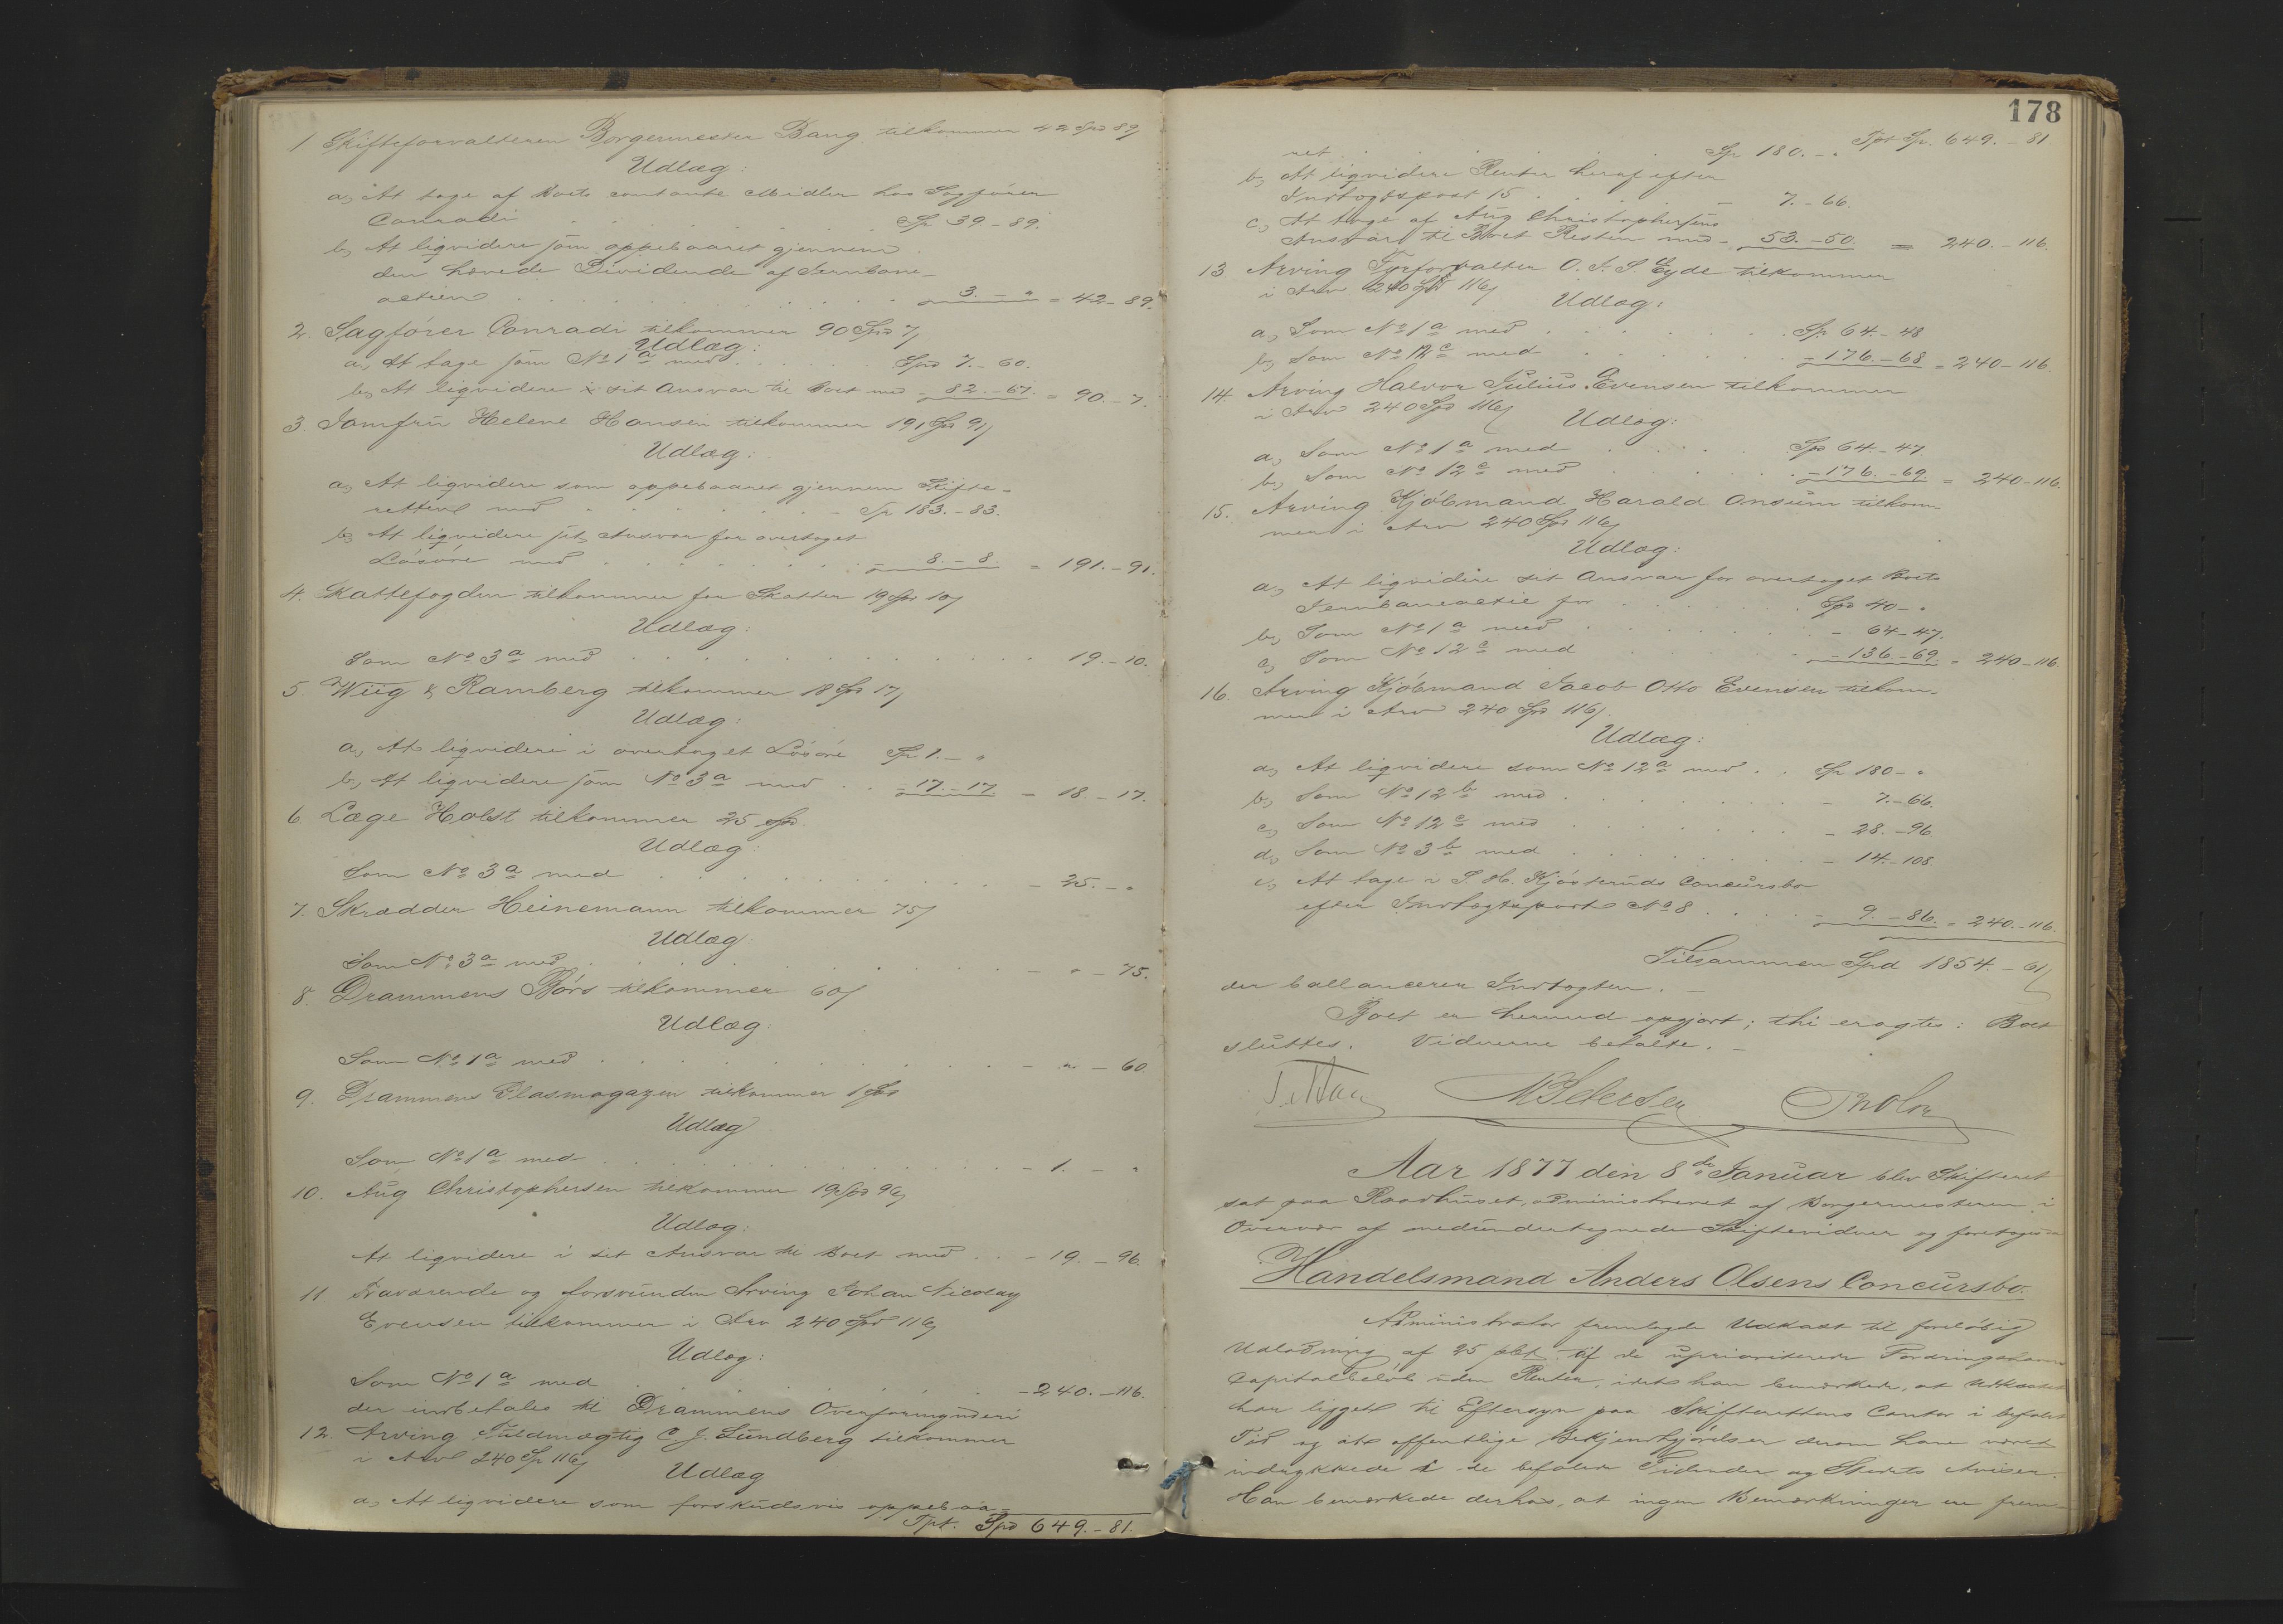 1 Skifteforvalteren Borgermester Bang tilkommer 42 Spd 89/
Udlæg:
a, At tage af Boets contante Midler hos Sagfører
Conradi . . . . . Sp 39 - 89.
b, At ligvidere som oppebaaret gjennem
den hævede Dividende af Jernbane-
actien . . . . . 3. - " = 42 - 89.
2. Sagfører Conradi tilkommer 90 Spd 7/
Udlæg:
a, At tage som No 1a med . . . Spd 7. - 60.
b, At ligvidere i sit Ansvar til Boet med - 82. - 67. = 90. - 7.
3. Jomfru Helene Hansen tilkommer 191 Spd 91/
Udlæg:
a, At ligvidere som oppebaaret gjennem Skifte-
retten med . . . . . Sp 183. - 83.
b, At ligvidere sit Ansvar for overtaget
Løsøre med . . . . . - 8. - 8. = 191. - 91.
4. Skattefogden tilkommer for Skatter 19 Spd 10/
Udlæg:
Som No 3a med . . . . . 19. - 10.
5. Wiig & Ramberg tilkommer 18 Spd 17/
Udlæg:
a, At ligvidere i overtaget Løsøre Sp 1. - "
b, At ligvidere som No 3a med . . - 17. - 17 = 18. - 17.
6. Læge Holst tilkommer 25 Spd.
Udlæg:
Som No 3a med . . . . . - 25. - "
7. Skrædder Heinemann tilkommer 75/
Udlæg.
Som No 3a med . . . . . - " - 75.
8. Drammens Børs tilkommer 60/
Udlæg.
Som No 1a med . . . . . - " - 60
9. Drammens Glasmagazin tilkommer 1 Spd
Udlæg
Som No 1a med . . . . . - 1. - "
10. Aug Christophersen tilkommer 19 Spd 96/
Udlæg:
At ligvidere i sit Ansvar til Boet med . . - 19. - 96.
11 Fraværende og forsvunden Arving Johan Nicolay
Evensen tilkommer i Arv 240 Spd 116/
Udlæg:
Som No 1a med . . . . . - 240. - 116.
der indbetales til Drammens Overformynderi
12. Arving Fuldmægtig C. J. Lundberg tilkommer
i Arv 240 Sp 116/
Udlæg
a, At ligvidere som forskudsvis oppebaa-
Tpt. Spd 649. - 81.
178
Tpt Sp. 649. - 81
ret . . . . Sp 180. - "
b, At ligvidere Renter heraf efter
Indtægtspost 15 . . . . - 7. - 66.
c, At tage af Aug Christophersens
Ansvar til Boet Resten med - 53. - 50. = 240. - 116.
13 Arving O. J. S. Eyde tilkommer
i Arv 240 Spd 116/
Udlæg:
a, Som No 1a med . . . . . Sp. 64 - 48
b, Som No 12c med . . . . . - 176. - 68 = 240 - 116.
14. Arving Halvor Julius Evensen tilkommer
i Arv 240 Spd 116/
Udlæg:
a, Som No 1a med . . . . . Sp 64. - 47.
b, Som No 12c med . . . . . - 176. - 69 = 240 - 116.
15. Arving Kjøbmand Harald Onsum tilkom-
mer i Arv 240 Spd 116/
Udlæg:
a, At ligvidere sit Ansvar for overtaget Boets
Jernbaneactie for . . . . Spd 40 - "
b, Som No 1a med . . . . . - 64 - 47.
c, Som No 12c med . . . . . - 136. - 69. = 240 - 116
16. Arving Kjøbmand Jacob Otto Evensen tilkom-
mer i Arv 240 Spd 116/
Udlæg:
a, At ligvidere som No 12a med . . Sp 180 - "
b, Som No 12b med . . . . . - 7. - 66.
c, Som No 12c med . . . . . - 28. - 96.
d, Som No 3b med . . . . . - 14. - 108.
e, At tage i Concursbo
efter Indtægtspost No 8 . . . . - 9. - 86. = 240. - 116.
Tilsammen Spd 1854. - 61/
der ballancerer Indtægten. -
Boet er hermed opgjort; thi eragtes: Boet
sluttes. Vidnerne betalte. -
Aar 1877 den 8de Januar blev Skifteret
sat paa Raadhuset, administreret af Borgermesteren i
Overvær af medundertegnede Skiftevidner og foretoges
Handelsmand Anders Olsens Concursbo.
Administrator fremlagde Udkast til foreløbig
Udlodning af 25 pCt. af de uprioriterede Fordringshaveres
Capitalbeløb uden Renter, idet han bemærkede, at Udkastet
har ligget til Eftersyn paa Skifterettens Contor i befalet
Tid og at offentlige Bekjendtgjørelser derom have været
indrykkede i de befalede Tidender og Stedets Aviser.
Han bemærkede derhos, at ingen Bemærkninger ere frem-